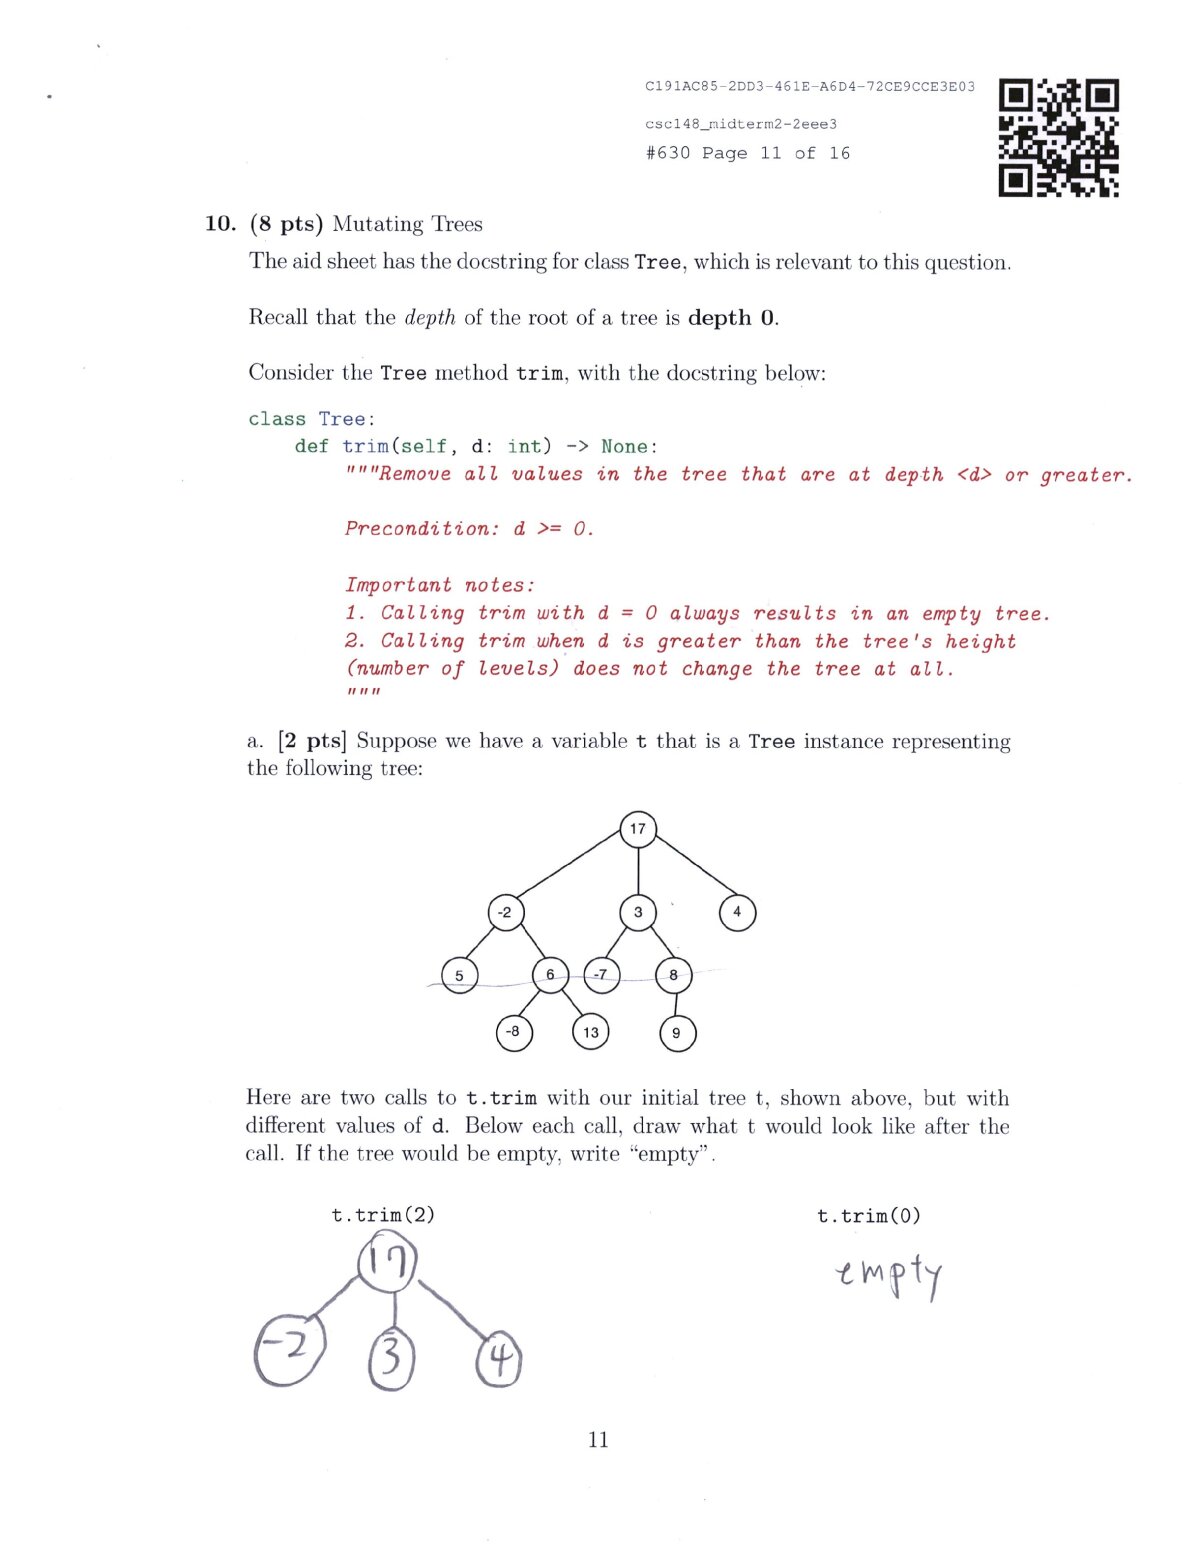 C191AC85-2DD3-461E-A6D4-72CE9CCE3E03
csc148_midterm2-2eee3
#630 Page 11 of 16
10. (8 pts) Mutating Trees
The aid sheet has the docstring for class Tree, which is relevant to this question.
Recall that the depth of the root of a tree is depth 0.
Consider the Tree method trim, with the docstring below:
class Tree:
def trim(self, d: int) -> None:
"""Remove all values in the tree that are at depth <d> or greater.
Precondition: d >= 0.
Important notes:
1. Calling trim with d = 0 always results in an empty tree.
2. Calling trim when d is greater than the tree's height
(number of levels) does not change the tree at all.
"""
a. [2 pts] Suppose we have a variable t that is a Tree instance representing
the following tree:
17
-2 3 4
5 6 -7 8
-8 13 9
Here are two calls to t.trim with our initial tree t, shown above, but with
different values of d. Below each call, draw what t would look like after the
call. If the tree would be empty, write “empty”.
t.trim(2) t.trim(0)
17 empty
-2 3 4
11